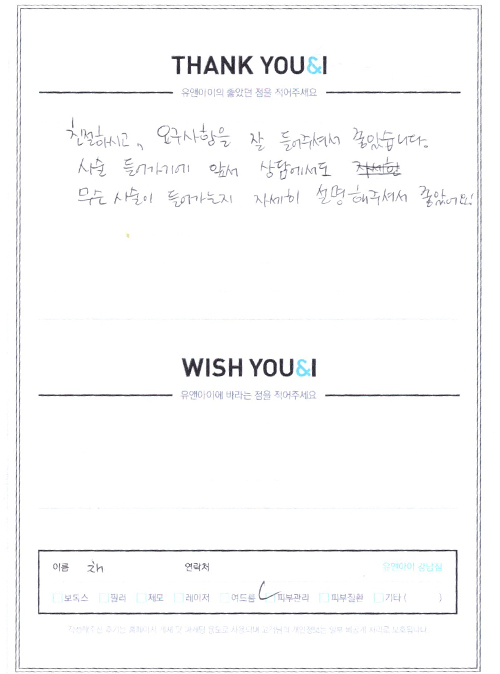 THANK YOU&I
유앤아이의 좋았던 점을 적어주세요
친절하시고, 요구사항을 잘 들어주셔서 좋았습니다.
시술 들어가기에 앞서 상담에서도 자세한
무슨 시술이 들어가는지 자세히 설명해주셔서 좋았어요!
WISH YOU&I
유앤아이에 바라는 점을 적어주세요
이름 연락처 유앤아이
보톡스 필러 제모 레이저 여드름 피부관리 피부질환 기타 ( )